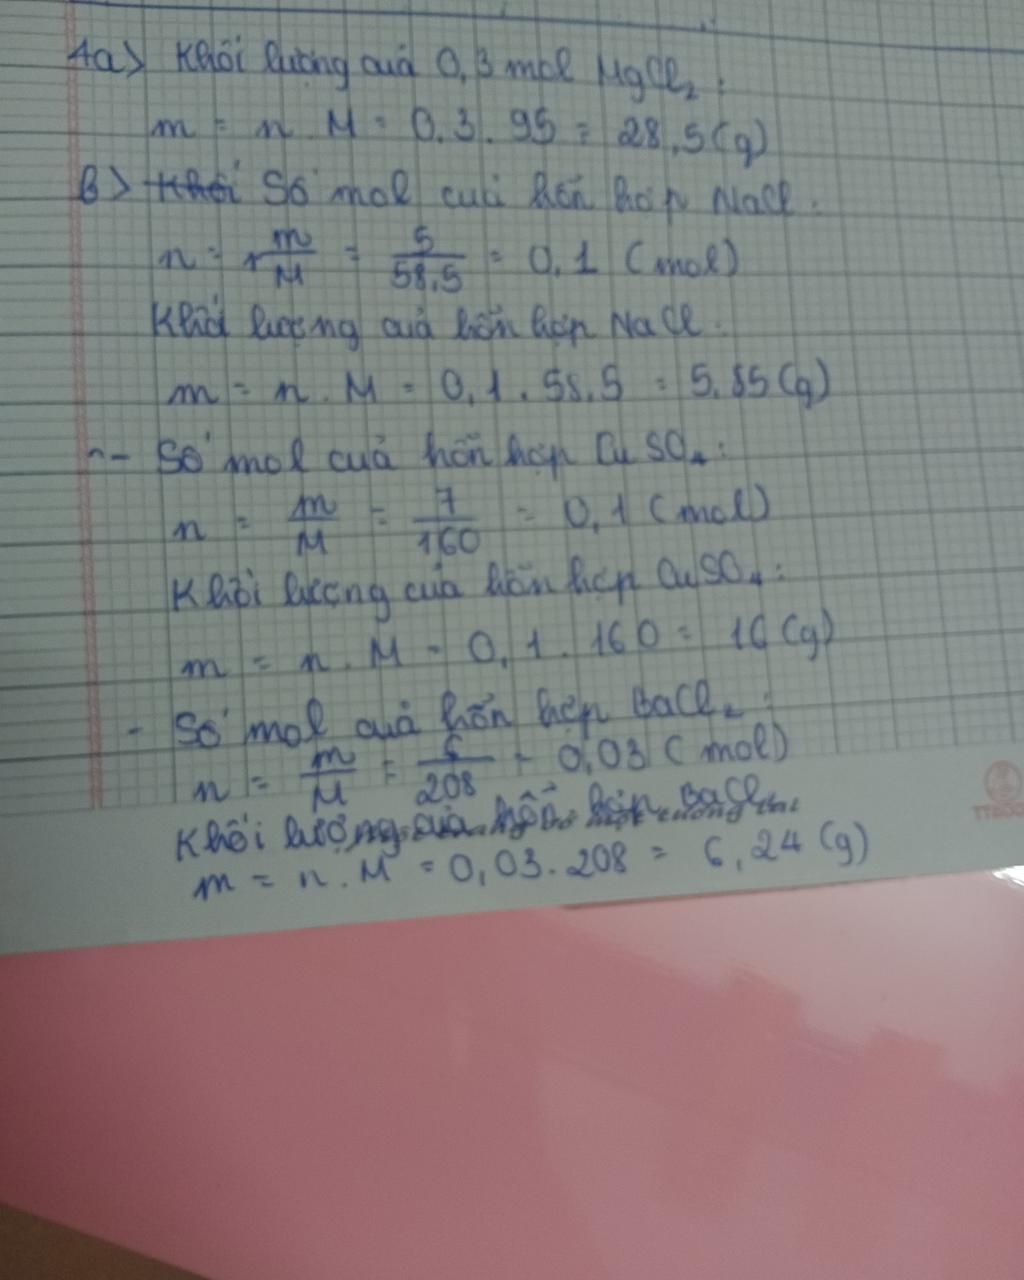 4a) Khối lượng quả 0,3 mol MgCl₂:
m = n . M = 0.3 . 95 = 28,5 (g)
B) Khối Số mol cuả hỗn hợp NaCl.
n = m/M = 5/58,5 = 0,1 (mol)
Khối lượng quả hỗn hợp NaCl.
m = n . M = 0,1 . 58,5 = 5,85 (g)
- Số mol cuả hỗn hợp CuSO₄:
n = m/M = 7/160 = 0,1 (mol)
Khối lượng của hỗn hợp CuSO₄:
m = n . M = 0,1 . 160 = 16 (g)
- Số mol quả hỗn hợp BaCl₂:
n = m/M = 6/208 = 0,03 (mol)
Khối lượng của hỗn hợp BaCl₂
m = n . M = 0,03 . 208 = 6,24 (g)